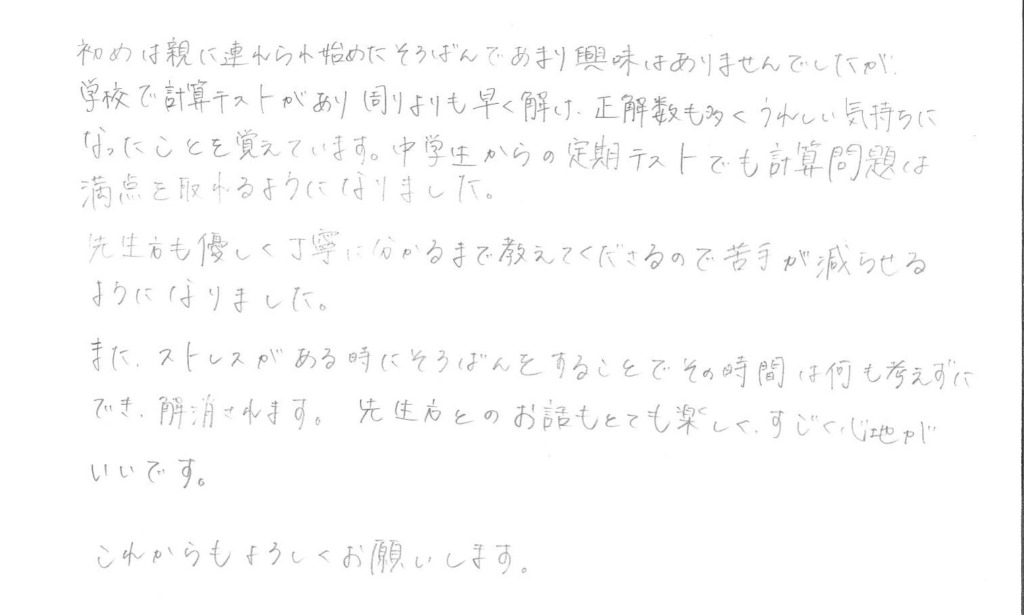 初めは親に連れられ始めたそろばんであまり興味はありませんでしたが、
学校で計算テストがあり周りよりも早く解け、正解数も多くうれしい気持ちに
なったことを覚えています。中学生からの定期テストでも計算問題は
満点を取れるようになりました。
先生方も優しく丁寧に分かるまで教えてくださるので苦手が減らせる
ようになりました。
また、ストレスがある時にそろばんをすることでその時間は何も考えずに
でき、解消されます。先生方とのお話もとても楽しく、すごく心地が
いいです。
これからもよろしくお願いします。